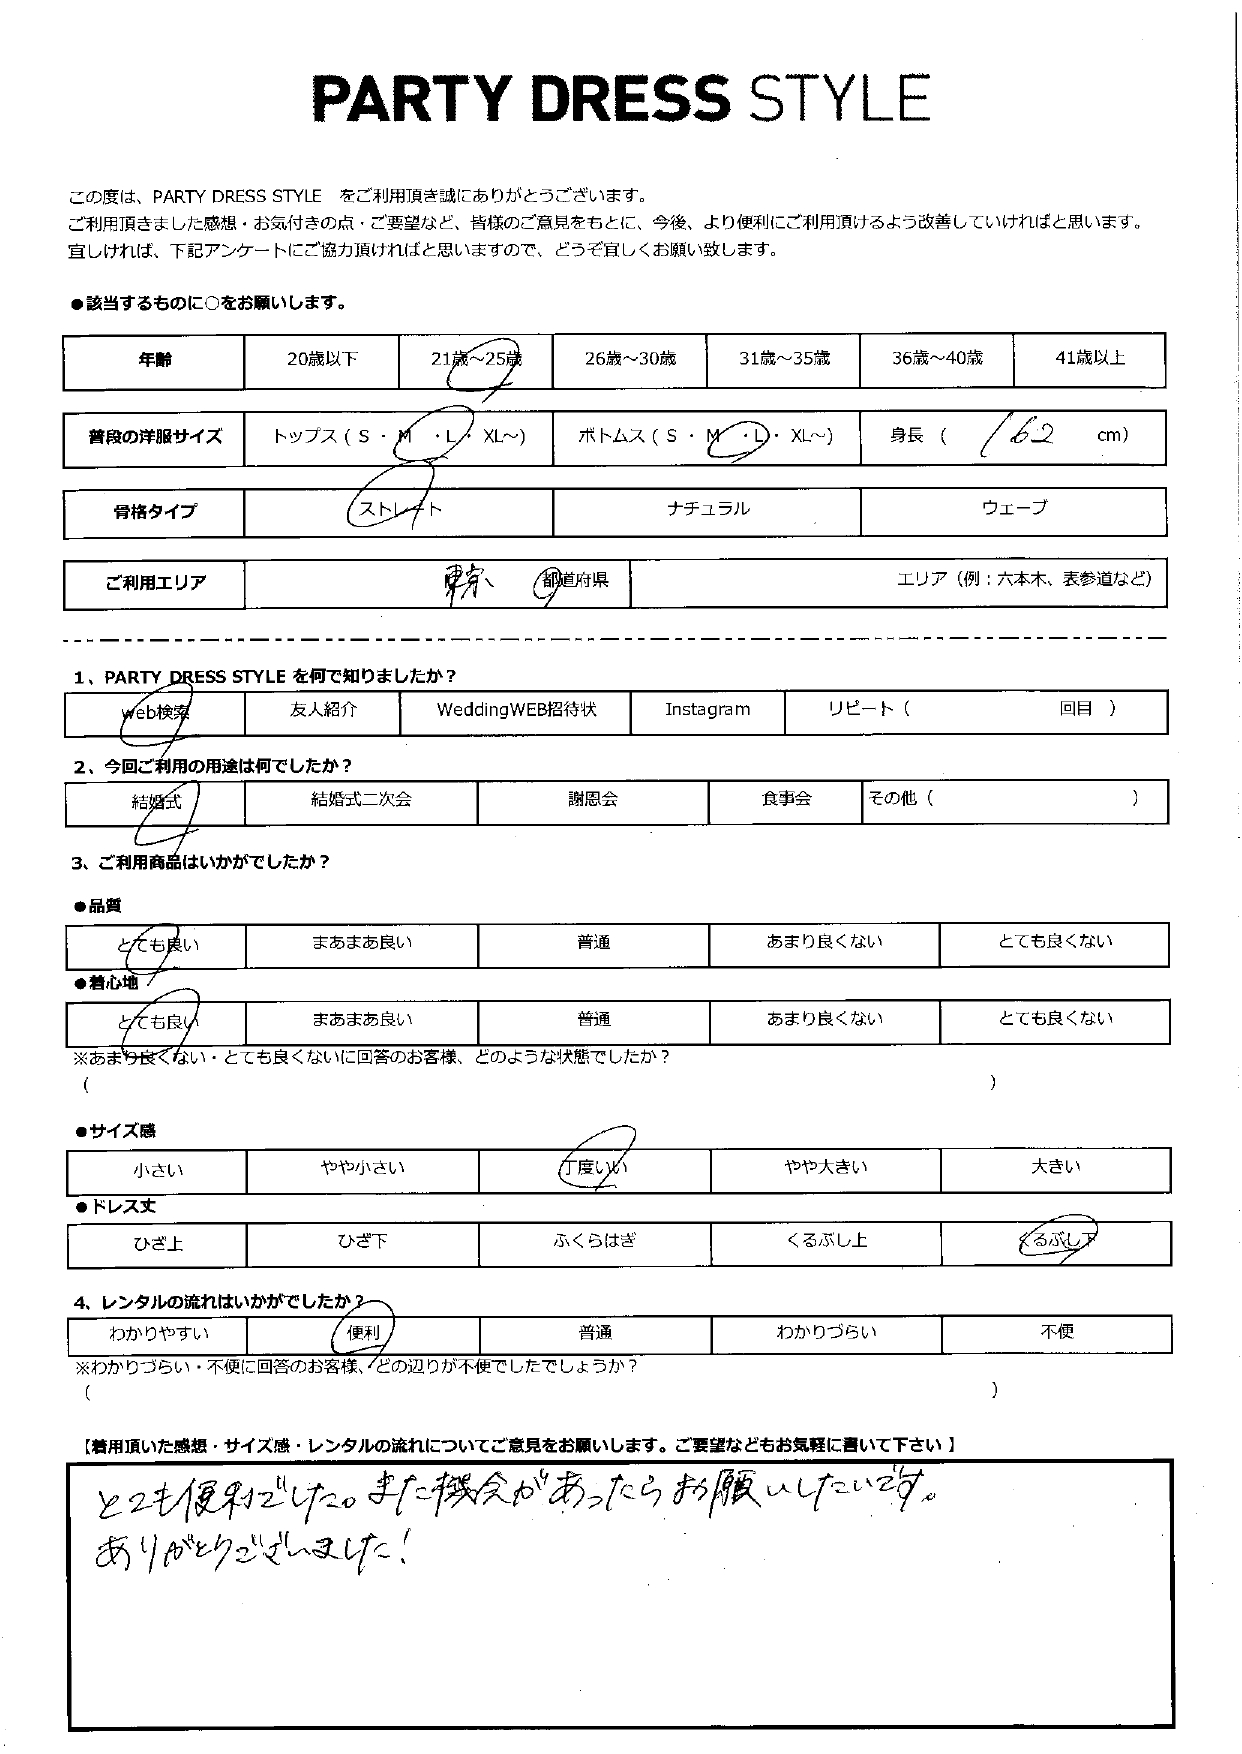 PARTY DRESS STYLE
この度は、PARTY DRESS STYLE をご利用頂き誠にありがとうございます。
ご利用頂きました感想・お気付きの点・ご要望など、皆様のご意見をもとに、今後、より便利にご利用頂けるよう改善していければと思います。
宜しければ、下記アンケートにご協力頂ければと思いますので、どうぞ宜しくお願い致します。
●該当するものに○をお願いします。
年齢 20歳以下 21歳～25歳 26歳～30歳 31歳～35歳 36歳～40歳 41歳以上
普段の洋服サイズ トップス ( S ・ M ・ L ・ XL～) ボトムス ( S ・ M ・ L ・ XL～) 身長 ( 162 cm)
骨格タイプ ストレート ナチュラル ウェーブ
ご利用エリア 東京 都道府県 エリア（例：六本木、表参道など）
1、PARTY DRESS STYLE を何で知りましたか？
web検索 友人紹介 WeddingWEB招待状 Instagram リピート（ 回目 ）
2、今回ご利用の用途は何でしたか？
結婚式 結婚式二次会 謝恩会 食事会 その他（ ）
3、ご利用商品はいかがでしたか？
●品質
とても良い まあまあ良い 普通 あまり良くない とても良くない
●着心地
とても良い まあまあ良い 普通 あまり良くない とても良くない
※あまり良くない・とても良くないに回答のお客様、どのような状態でしたか？
（ ）
●サイズ感
小さい やや小さい 丁度いい やや大きい 大きい
●ドレス丈
ひざ上 ひざ下 ふくらはぎ くるぶし上 くるぶし下
4、レンタルの流れはいかがでしたか？
わかりやすい 便利 普通 わかりづらい 不便
※わかりづらい・不便に回答のお客様、どの辺りが不便でしたでしょうか？
（ ）
【着用頂いた感想・サイズ感・レンタルの流れについてご意見をお願いします。ご要望などもお気軽に書いて下さい】
とても便利でした。また機会があったらお願いしたいです。
ありがとうございました！